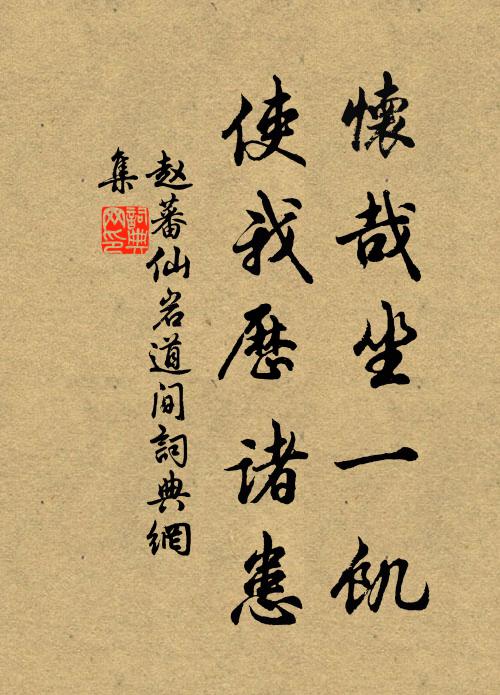 懷哉坐一飢
使我歷諸患
赵蕃仙岩道间詞典網
集
詞典網印